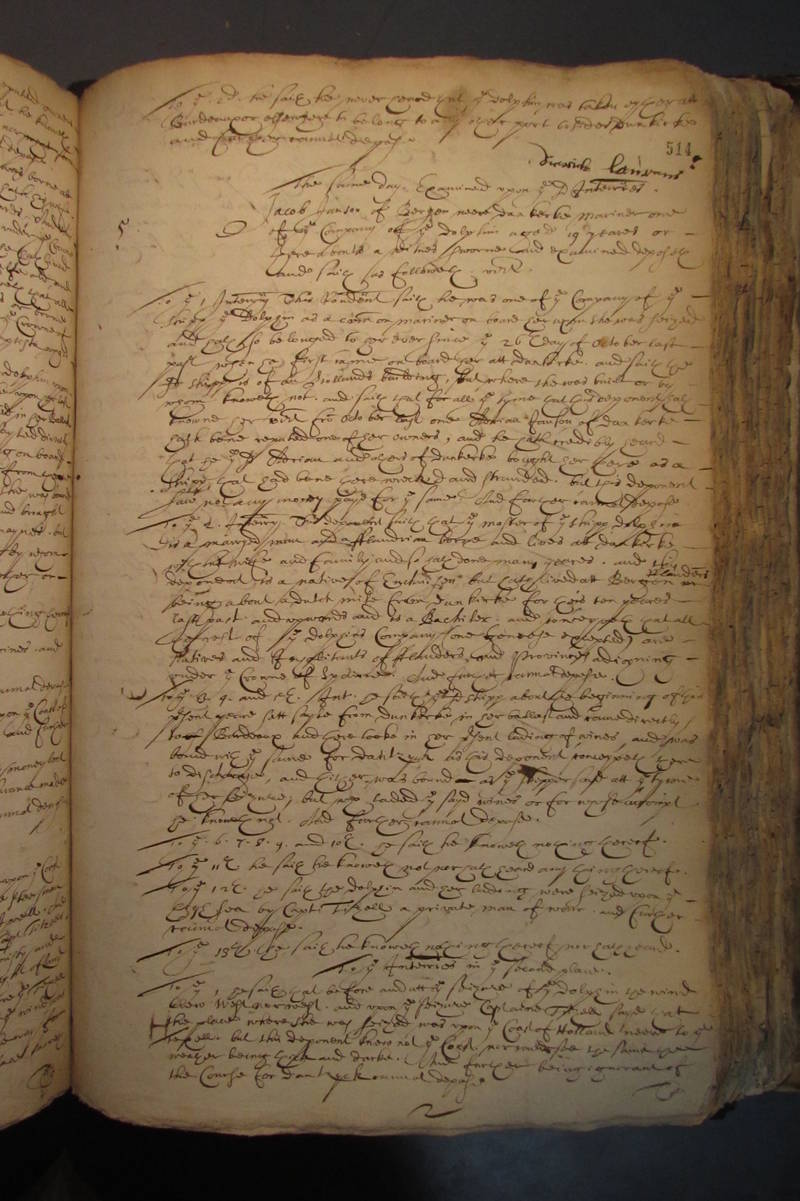 To ye 13th he saith he never heard that ye Dolphin was taken eyther att
Burdeaux or elsewhere to belong to any other port besides dunkerke
and further cannot depose.
514
Diericke Laurens
The same day. Examined upon ye sd Interries.
5
Jacob Janson of Bergen neere dunkerke Mariner one
of ye Company of ye Dolphin aged 19 yeares or
thereabouts a witnes sworne and examined deposeth
and saith as followeth. vizt.
To ye 1 Interry this Rendent saith he was one of ye Company of ye
shipp ye Dolphin as a comon mariner on board her when she was seized
and hath so belonged to her ever since ye 26th day of October last
past when he first came on board her att dunkerke. and saith the
sd shipp is of an Hollands building, but where she was built or by
whom knoweth not. and saith that for all ye tyme that this deponent hath
knowne her vizt fro October last one Adrian Janson of dunkerke
hath bene reputed one of her owners, and he hath credibly heard
that he ye sd Adrian and others of dunkerke bought her there as a
shipp that had bene there wrecked and stranded. but this deponent
saw not any money payd for ye same. And further cannot depose
To ye 2. Interry This deponent saith that ye master of ye shipp dolphin
is a maryed man and a fflandrian borne and lives at dunkerke
with his wife and family and so hath done many yeares. and this
deponent is a native of Enchuisen but hath lived at Bergen in fflanders
being about a dutch mile from dunkerke for theis ten yeares
last past and upwards and is a Bachiler. and conceiveth that all
the rest of ye dolphins Company (one frenchse excepted) are
Natives and Inhabitants of fflanders and Provinces adjoyning
under ye Crowne of Spaine. And further cannot depose.
To ye 3. 4. and 5th. Int. he saith the sd shipp about the beginning of this
present yeare sett sayle from dunkerke in her ballast and came directly
to Burdeaux and there tooke in her present lading of wines, and was
bound with ye same for dantzick as this deponent conceiveth there
to discharge, and thither was bound as ye skipper sayd att ye tyme
of her seizure, but who laded ye sayd wines or for whose accompt
he knoweth not. And further cannot depose.
To ye 6. 7. 8. 9. and 10th. he saith he knoweth nothing thereof.
To ye 11th he saith he knoweth not nor hath heard any thing thereof.
To ye 12th. he saith the Dolphin and her lading were seized upon ye
high sea by Capt: Tikell a private man of warr. and further
cannot depose.
To ye 13th he saith he knoweth nothing thereof nor hath heard.
To ye Interries in ye second place.
To ye 1 he saith that before and att ye seizure of ye Dolphin the wind
blew West northwest. and upon ye seizure Captaine Tikell sayd that
the place where she was seized was upon ye Coast of Holland neere to ye
Texell. but this deponent knew not ye Coast, nor could see the same the
weather being thick and darke. And further being ignorant of
the Course for dantzick cannot depose.